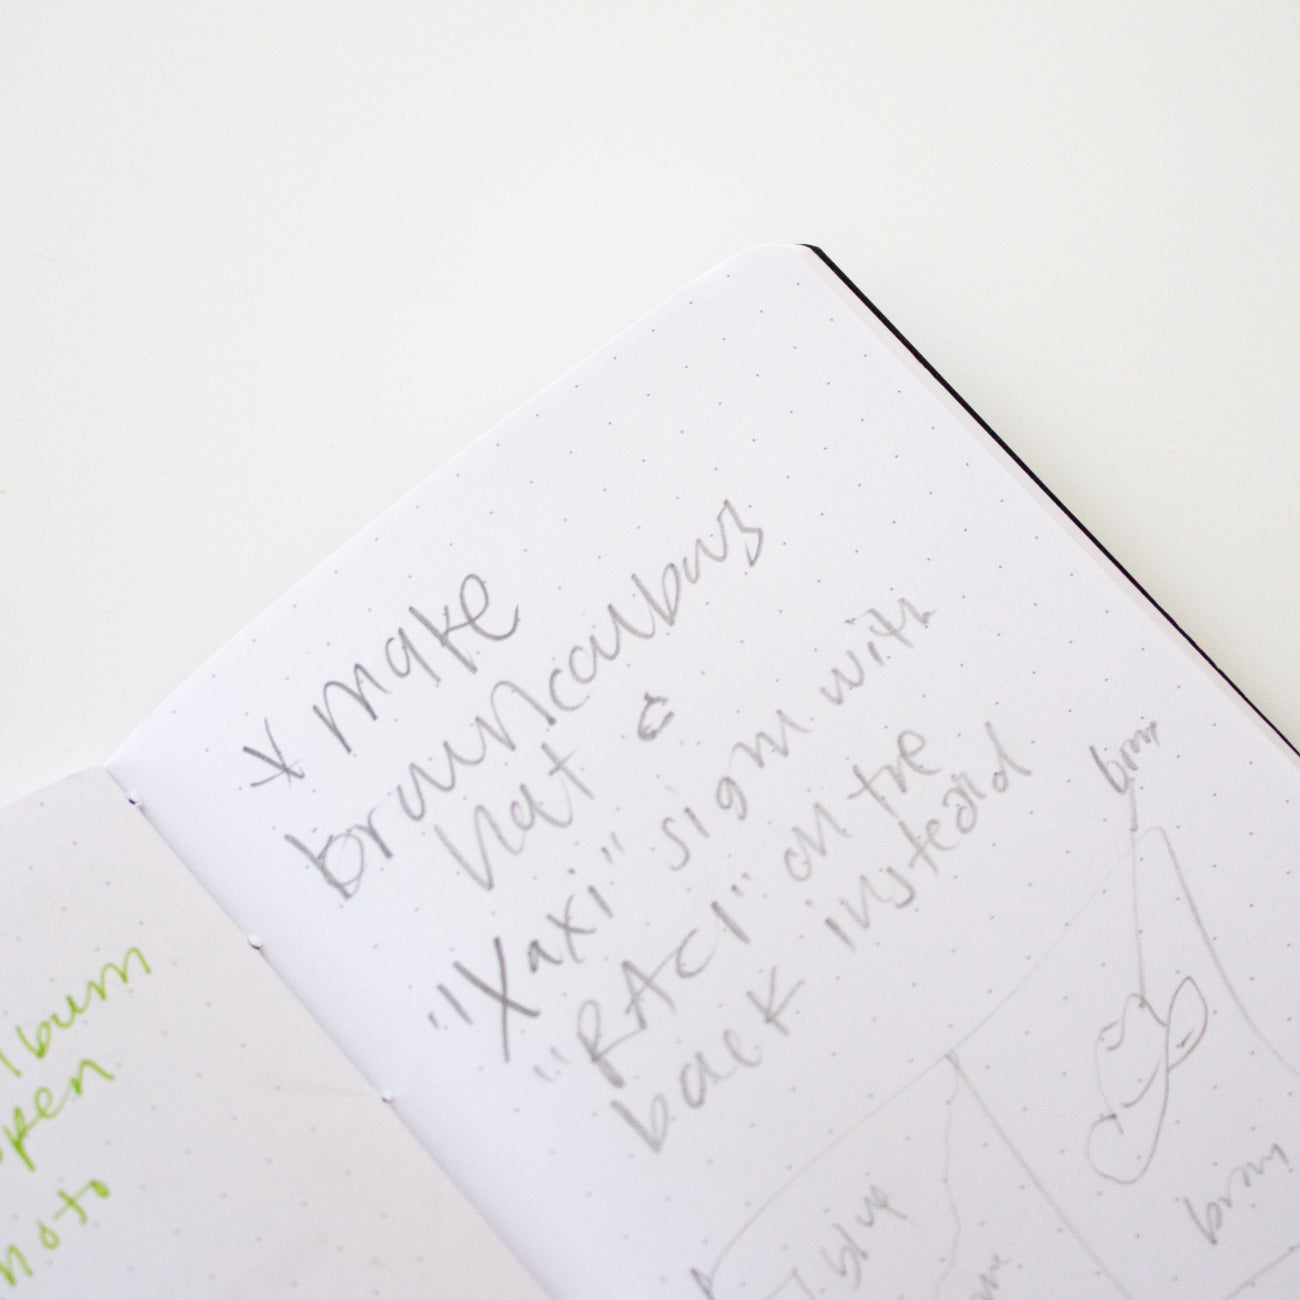 lbum
ken
hoto
* make
brown cowboy
hat &
"Yaxi" sign with
"RACI" on the
back instead
brown
blue
brown